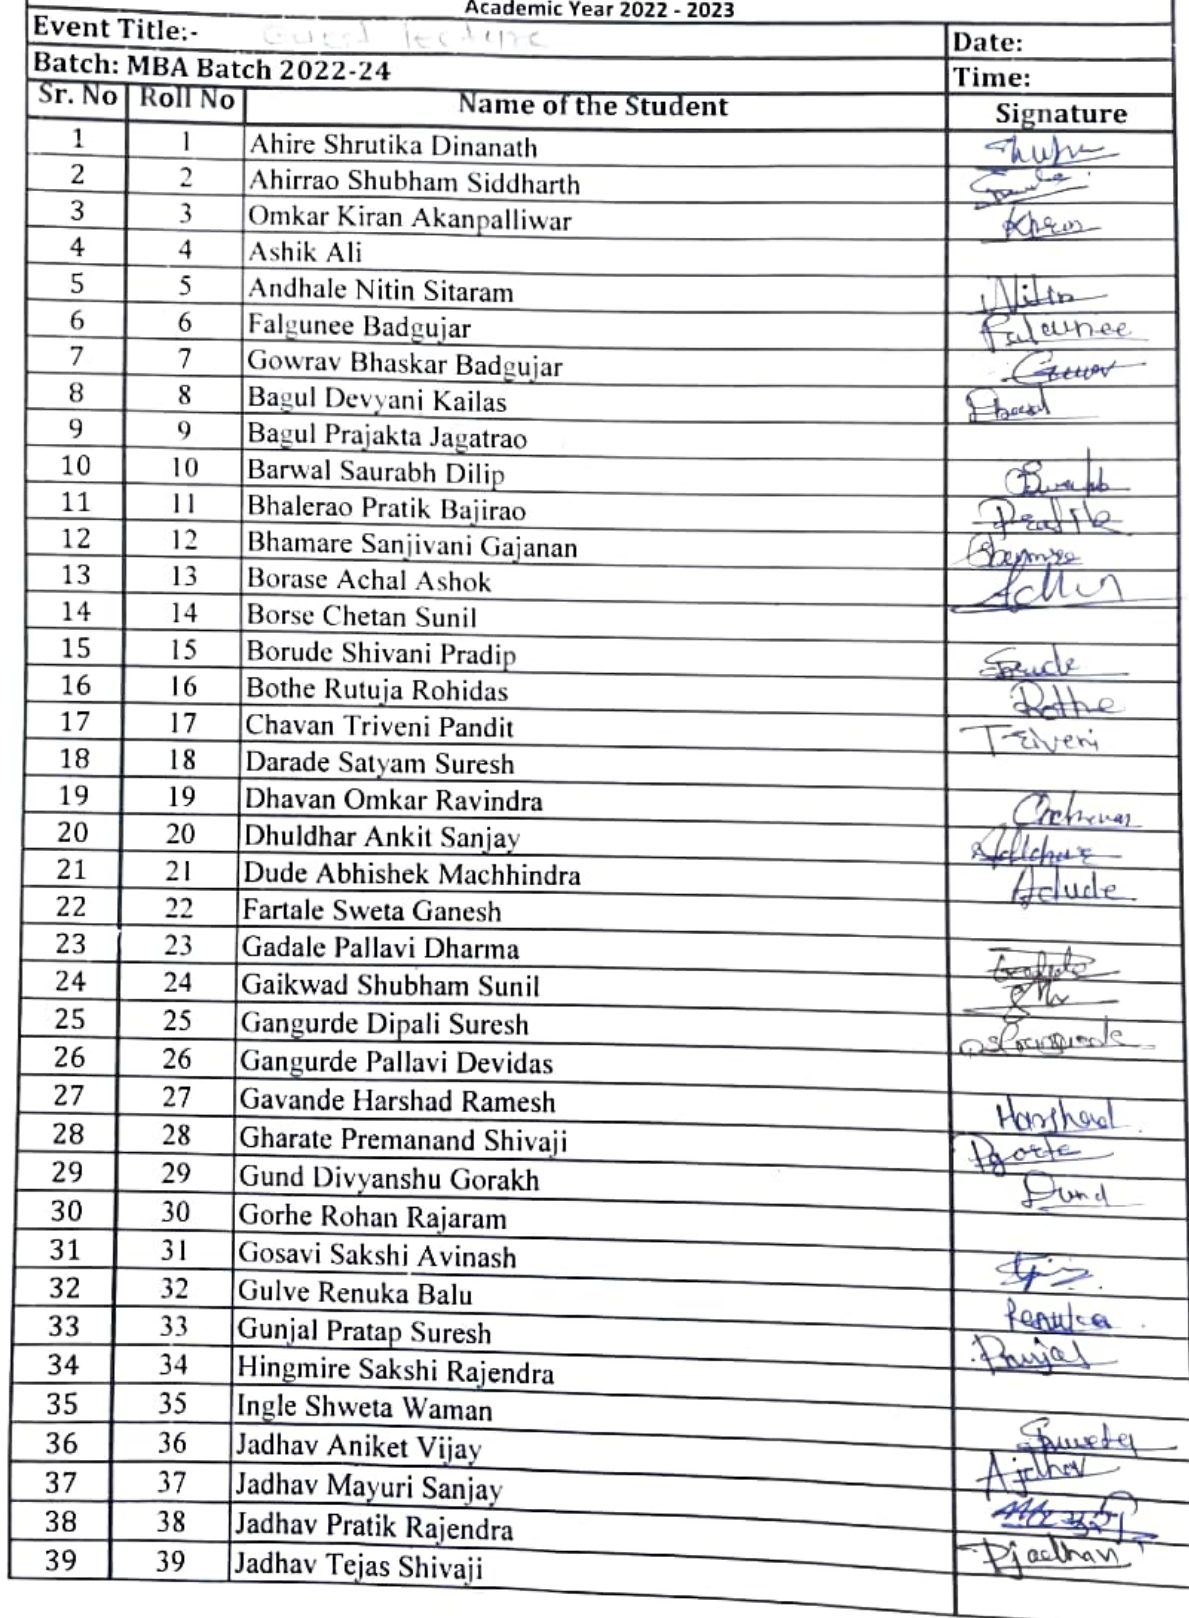 Academic Year 2022 - 2023
Event Title:- Guest lecture
Date:
Batch: MBA Batch 2022-24
Time:
Sr. No Roll No Name of the Student Signature
1 1 Ahire Shrutika Dinanath
2 2 Ahirrao Shubham Siddharth
3 3 Omkar Kiran Akanpalliwar
4 4 Ashik Ali
5 5 Andhale Nitin Sitaram Nitin
6 6 Falgunee Badgujar Falgunee
7 7 Gowrav Bhaskar Badgujar
8 8 Bagul Devyani Kailas
9 9 Bagul Prajakta Jagatrao
10 10 Barwal Saurabh Dilip
11 11 Bhalerao Pratik Bajirao Pratik
12 12 Bhamare Sanjivani Gajanan
13 13 Borase Achal Ashok
14 14 Borse Chetan Sunil
15 15 Borude Shivani Pradip
16 16 Bothe Rutuja Rohidas Bothe
17 17 Chavan Triveni Pandit Triveni
18 18 Darade Satyam Suresh
19 19 Dhavan Omkar Ravindra
20 20 Dhuldhar Ankit Sanjay
21 21 Dude Abhishek Machhindra Adude
22 22 Fartale Sweta Ganesh
23 23 Gadale Pallavi Dharma
24 24 Gaikwad Shubham Sunil
25 25 Gangurde Dipali Suresh
26 26 Gangurde Pallavi Devidas
27 27 Gavande Harshad Ramesh Harshad
28 28 Gharate Premanand Shivaji
29 29 Gund Divyanshu Gorakh
30 30 Gorhe Rohan Rajaram
31 31 Gosavi Sakshi Avinash
32 32 Gulve Renuka Balu Renuka
33 33 Gunjal Pratap Suresh
34 34 Hingmire Sakshi Rajendra
35 35 Ingle Shweta Waman
36 36 Jadhav Aniket Vijay Ajadhav
37 37 Jadhav Mayuri Sanjay
38 38 Jadhav Pratik Rajendra Pjadhav
39 39 Jadhav Tejas Shivaji